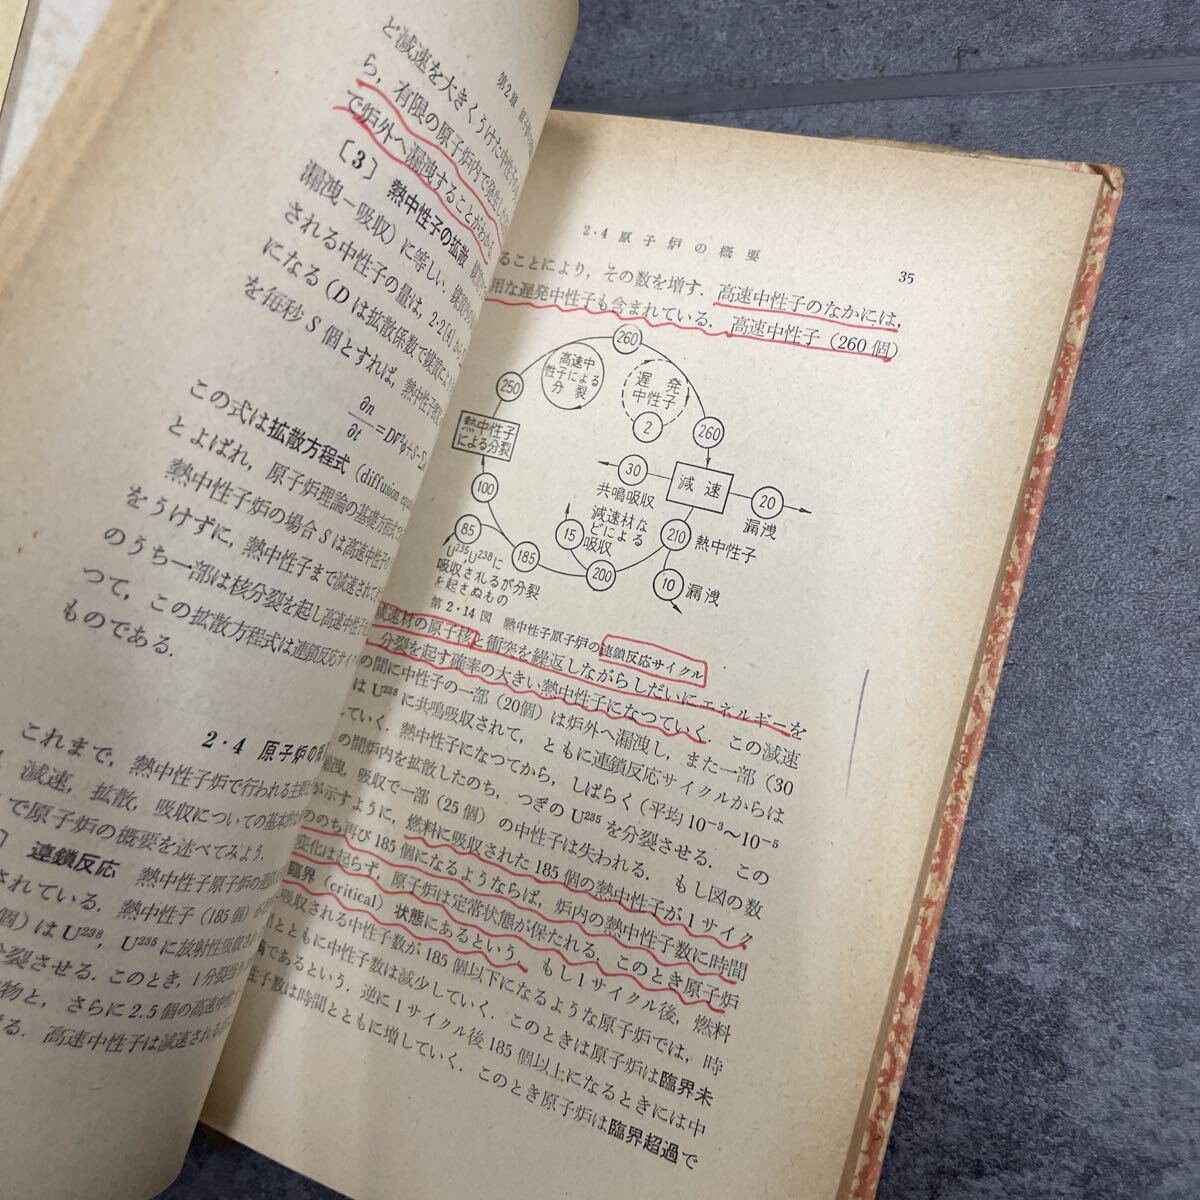 第2章
ど減速を大きくうけた中性子の
ら，有限の原子炉内で発生した
で炉外へ漏洩することがわかる．
〔3〕 熱中性子の拡散
漏洩－吸収）に等しい．
される中性子の量は，2・2(4)から
になる（Dは拡散係数で媒質に
を毎秒S個とすれば，熱中性子
∂n/∂t=D∇²φ+S-Σ
この式は拡散方程式 (diffusion equa
とよばれ，原子炉理論の基礎方程式
熱中性子炉の場合Sは高速中性子
をうけずに，熱中性子まで減速されて
のうち一部は核分裂を起し高速中性子
つて，この拡散方程式は連鎖反応サイ
ものである．
2・4 原子炉の
これまで，熱中性子炉で行われる主
減速，拡散，吸収についての基本
で原子炉の概要を述べてみよう．
〕 連鎖反応 熱中性子原子炉の連
されている．熱中性子（185個）
個）はU²³⁸，U²³⁵に放射性吸収
分裂させる．このとき，1分裂当
物と，さらに2.5個の高速中性
る．高速中性子は減速される
2・4 原子炉の概要 35
ることにより，その数を増す．高速中性子のなかには，
用な遅発中性子も含まれている．高速中性子（260個）
260
高速中
性子による
分裂
遅発
中性子
2
250
260
熱中性子
による分裂
30
共鳴吸収
減速
20
漏洩
100
減速材な
どによる
吸収
15
210
熱中性子
85
185
200
10
漏洩
U²³⁵,U²³⁸に
吸収されるが分裂
を起さぬもの
第2・14図 熱中性子原子炉の連鎖反応サイクル
減速材の原子核と衝突を繰返しながらしだいにエネルギーを
分裂を起す確率の大きい熱中性子になつていく．この減速
の間に中性子の一部（20個）は炉外へ漏洩し，また一部（30
はU²³⁸に共鳴吸収されて，ともに連鎖反応サイクルからは
していく．熱中性子になつてから，しばらく（平均10⁻³～10⁻⁵
の間炉内を拡散したのち，つぎのU²³⁵を分裂させる．この
漏洩，吸収で一部（25個）の中性子は失われる．もし図の数
が示すように，燃料に吸収された185個の熱中性子が1サイク
ののち再び185個になるようならば，炉内の熱中性子数に時間
変化は起らず，原子炉は定常状態が保たれる．このとき原子炉
臨界 (critical) 状態にあるという．もし1サイクル後，燃料
吸収される中性子数が185個以下になるような原子炉では，時
とともに中性子数は減少していく．このときは原子炉は臨界未
満であるという．逆に1サイクル後185個以上になるときには中
性子数は時間とともに増していく．このとき原子炉は臨界超過で